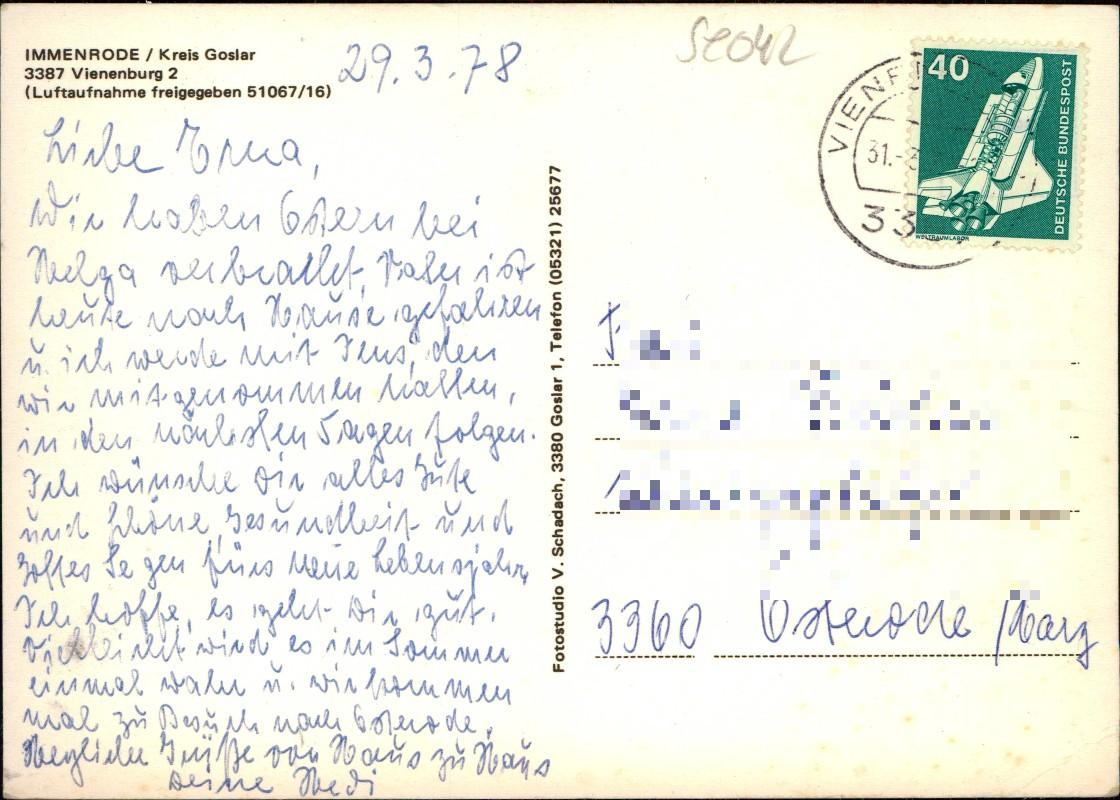 IMMENRODE / Kreis Goslar
3387 Vienenburg 2
(Luftaufnahme freigegeben 51067/16)
29.3.78
Liebe Erna,
Wir haben Ostern bei
Helga verbracht. Vater ist
heute nach Hause gefahren
u. ich werde mit Jens, den
wir mitgenommen hatten,
in den nächsten Tagen folgen.
Ich wünsche Dir alles Gute
und schöne Gesundheit und
Gottes Segen fürs neue Lebensjahr.
Ich hoffe, es geht Dir gut.
Vielleicht wird es im Sommer
einmal wahr u. wir kommen
mal zu Besuch nach Osterode.
Herzliche Grüße von Haus zu Haus
Deine Hedi
Fotostudio V. Schadach, 3380 Goslar 1, Telefon (05321) 25677
VIENE
31.-3
33
40
DEUTSCHE BUNDESPOST
WELTRAUMLABOR
3360 Osterode/Harz